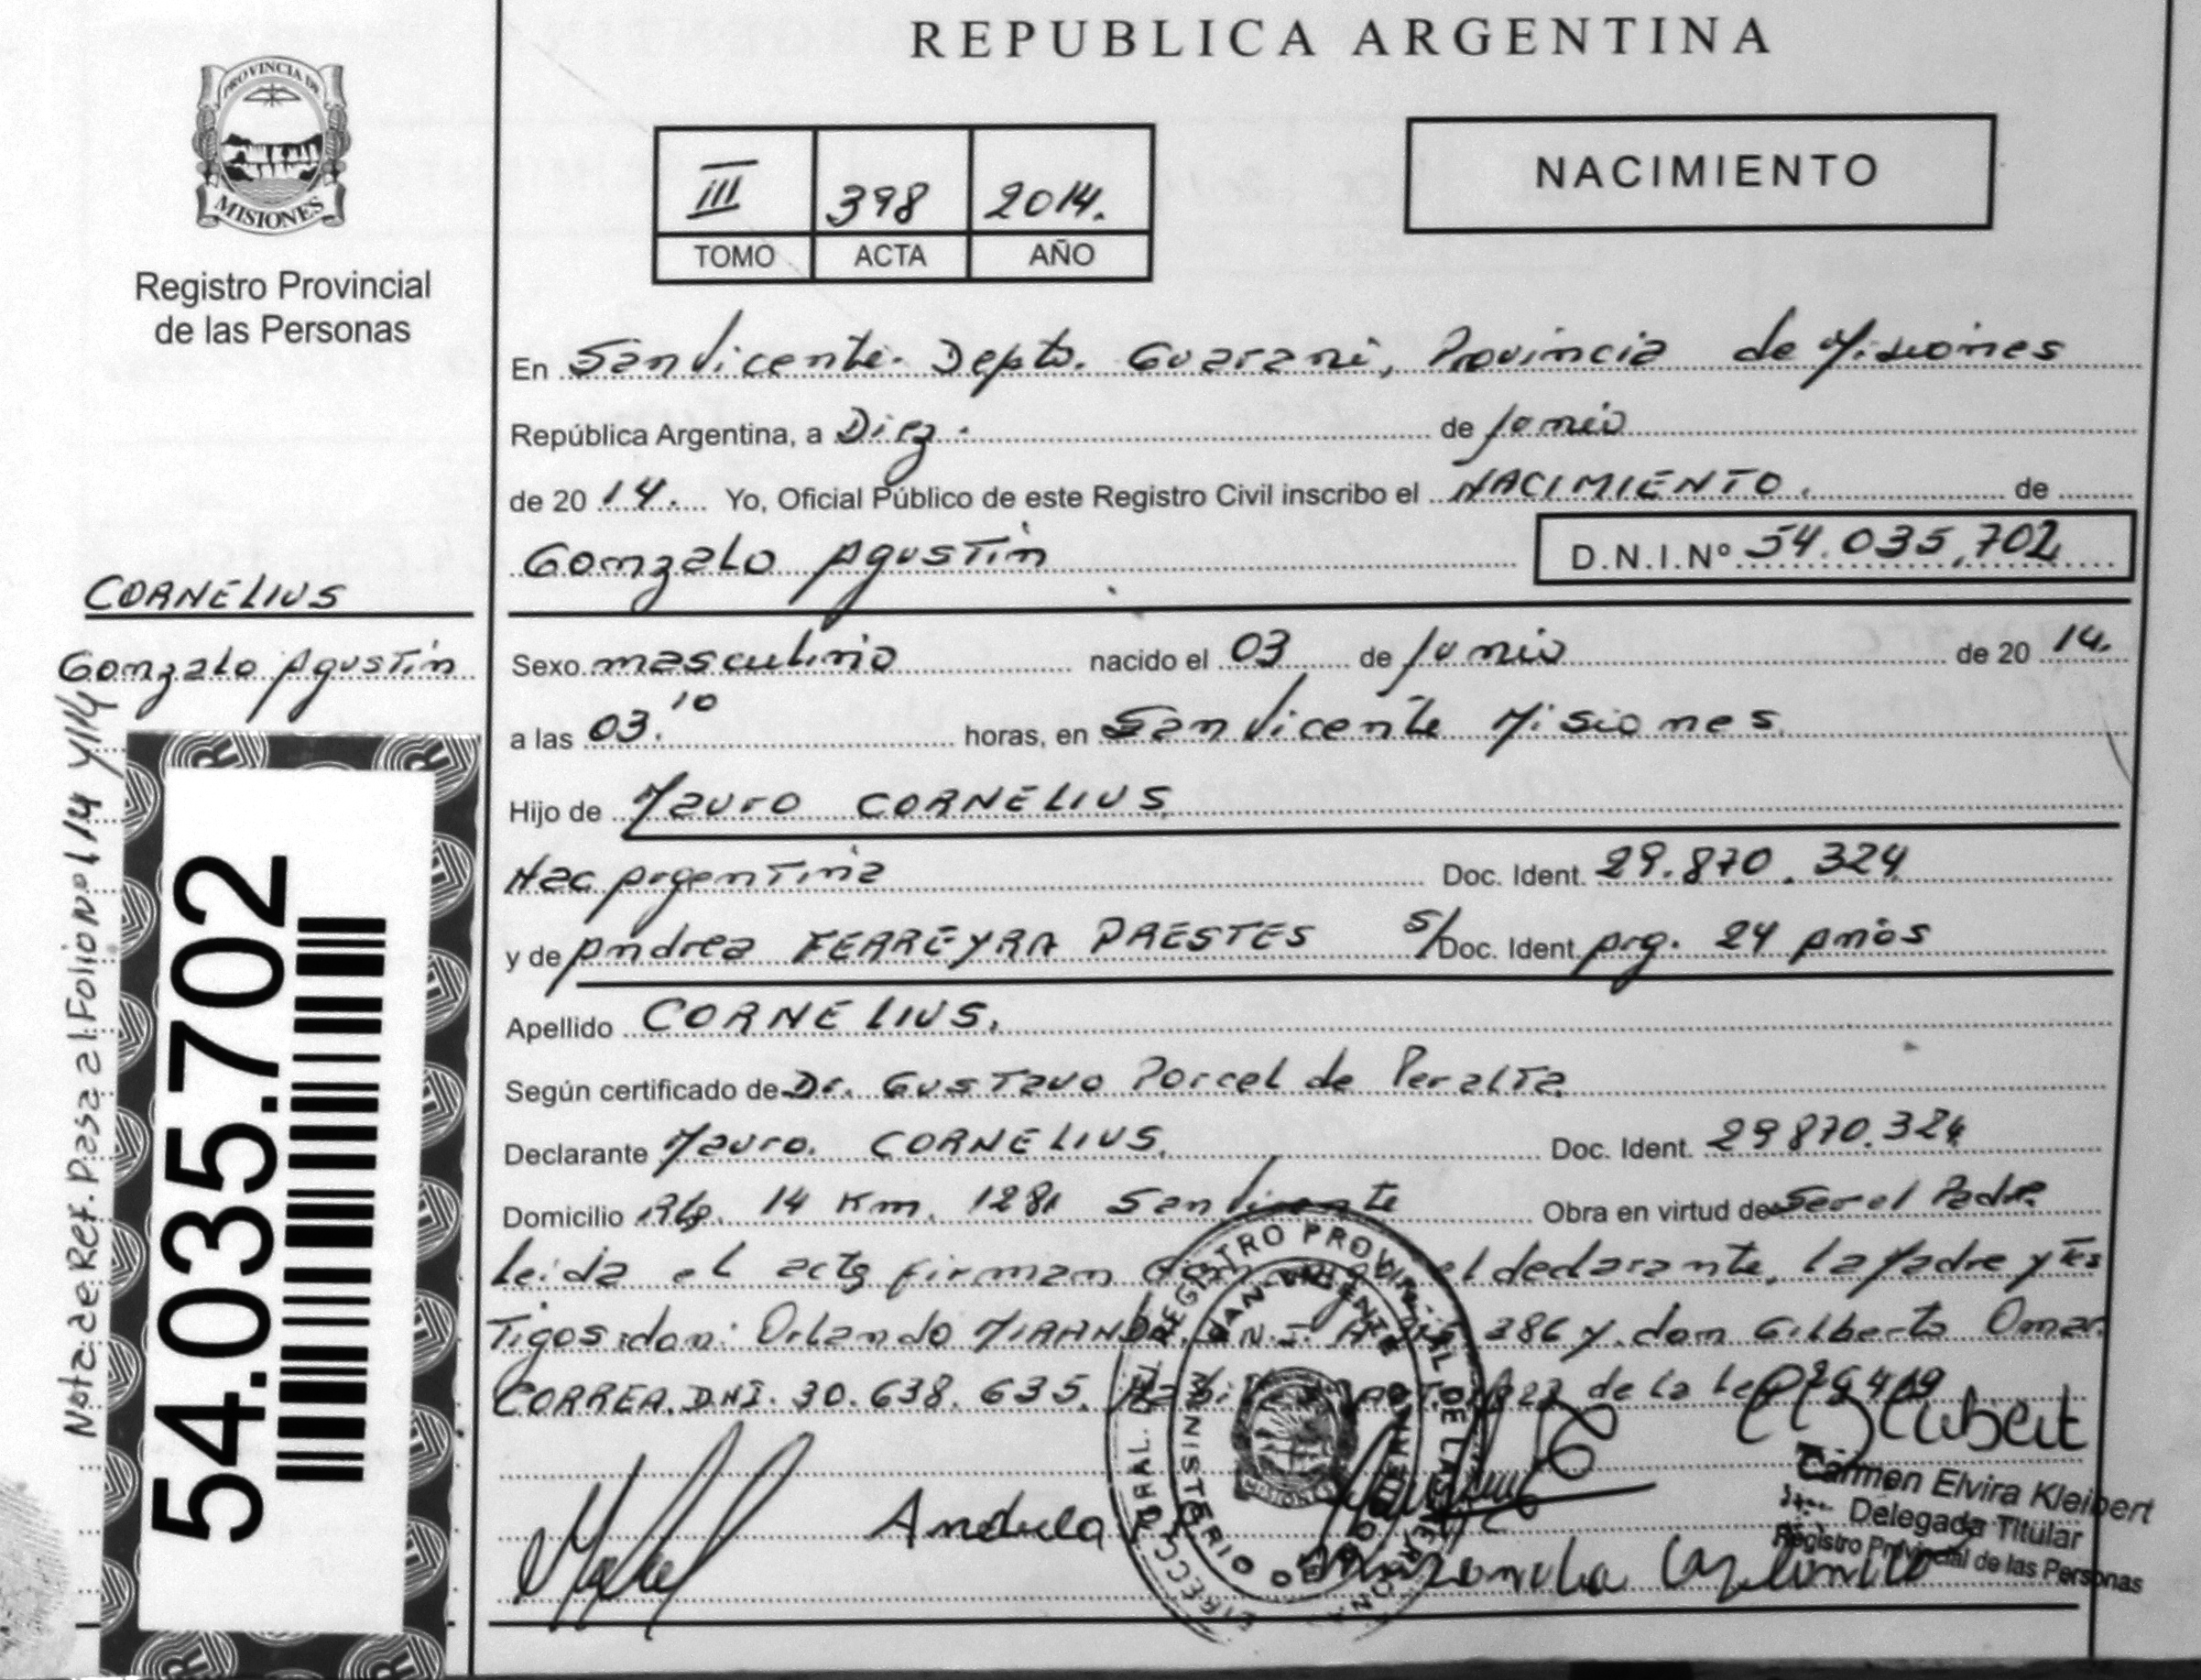 REPUBLICA ARGENTINA
PROVINCIA DE
MISIONES
Registro Provincial
de las Personas
III 398 2014.
TOMO ACTA AÑO
NACIMIENTO
En San Vicente. Depto. Guaraní, Provincia de Misiones
República Argentina, a Diez. de Junio
de 2014. Yo, Oficial Público de este Registro Civil inscribo el NACIMIENTO. de
Gonzalo Agustín D.N.I.Nº 54.035.702
CORNELIUS
Gonzalo Agustín
Sexo masculino nacido el 03 de Junio de 2014.
a las 03.10 horas, en San Vicente Misiones.
Hijo de Mauro CORNELIUS
Nac Argentina Doc. Ident. 29.870.324
y de Andrea FERREYRA PRESTES s/Doc. Ident. Arg. 24 Años
Apellido CORNELIUS.
Según certificado de Dr. Gustavo Porcel de Peralta
Declarante Mauro. CORNELIUS. Doc. Ident. 29870.324
Domicilio Rta. 14 Km. 1281 San Vicente Obra en virtud de Ser el Padre
Leida el acta firman el declarante, la Madre y Tes
Tigos: don: Orlando 286 y don Gilberto Omar
CORREA. DNI. 30.638.635. de la Ley
Nota de Ref. Pasa al Folio Nº 1/14 y 1/4
54.035.702
REGISTRO PROVINCIAL DE LAS PERSONAS
SAN VICENTE
MINISTERIO DE GOBIERNO
Andrea
Carmen Elvira Kleibert
Delegada Titular
Registro Provincial de las Personas